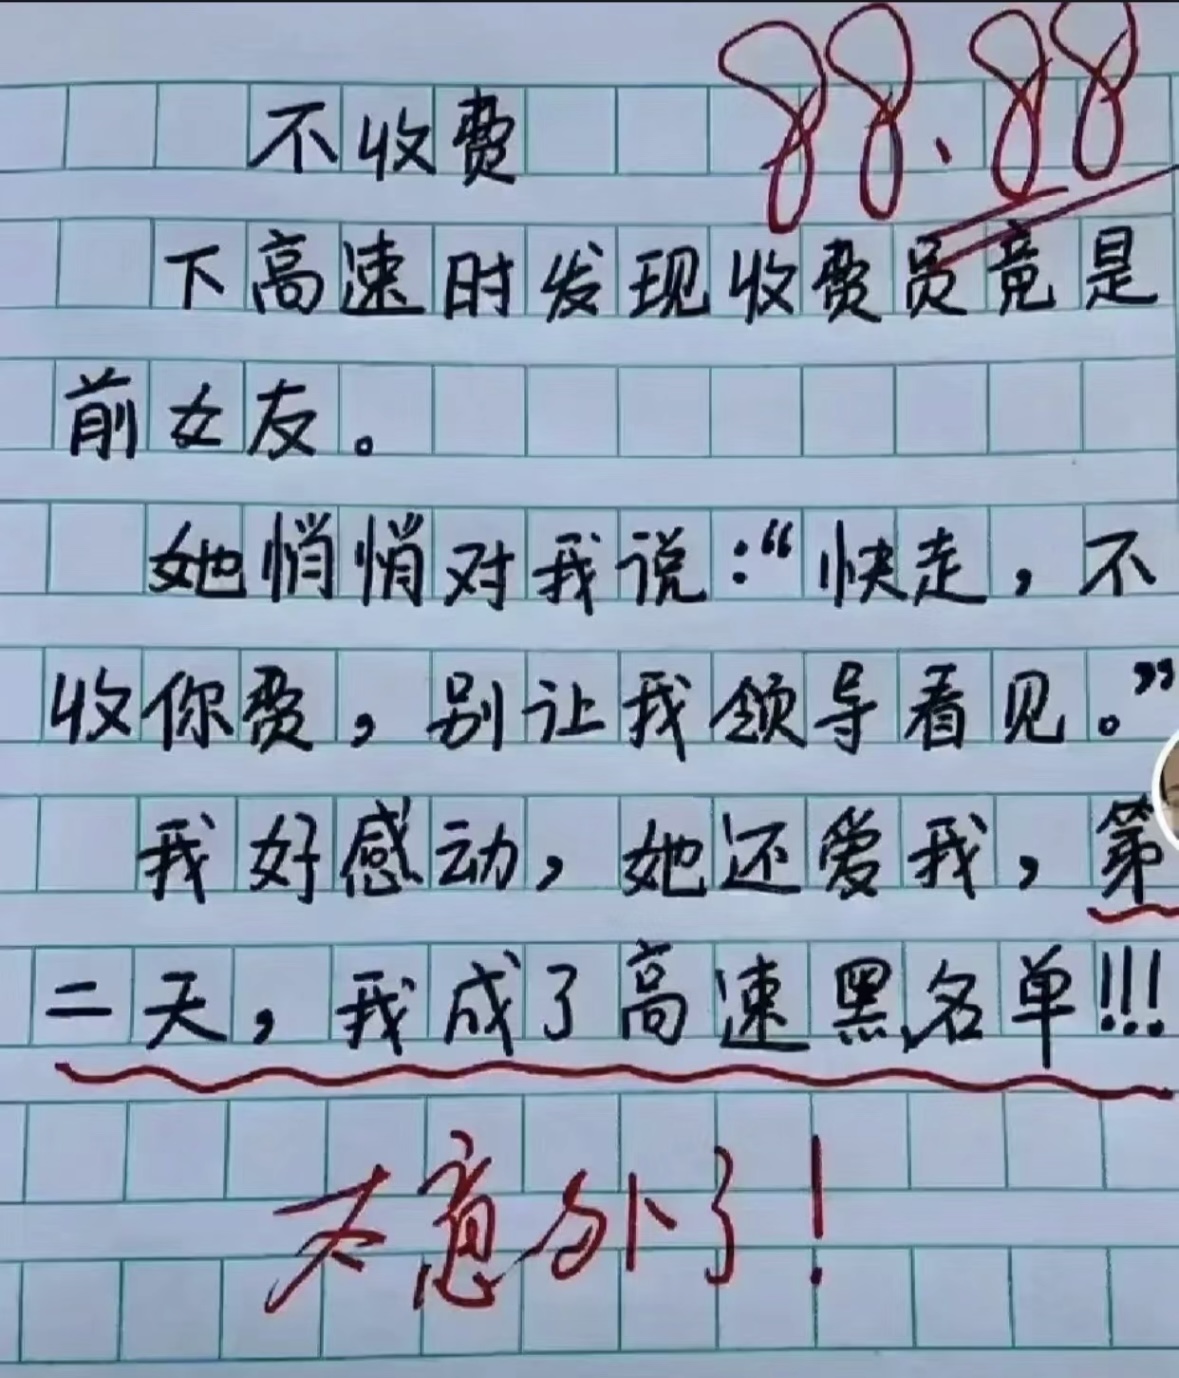 88.88
不收费
下高速时发现收费员竟是
前女友。
她悄悄对我说:“快走,不
收你费,别让我领导看见。”
我好感动,她还爱我,第
二天,我成了高速黑名单!!!
太意外了!